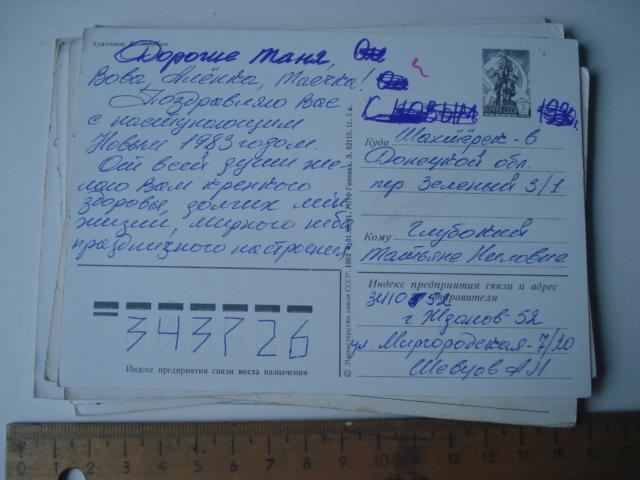 Художник
Дорогие Таня,
Вова, Алёнка, Таечка!
Поздравляю Вас
с наступающим
Новым 1983 годом.
От всей души же-
лаю Вам крепкого
здоровья, долгих лет
жизни, мирного неба
праздничного настроения
С новым
Куда Шахтёрск-6
Донецкой обл.
пер Зеленый 3/1
Кому Глубокий
Татьяне Ниловне
Индекс предприятия связи и адрес
отправителя
341052
г Жданов-52
ул. Миргородская-7/20
Шевцов А.П.
343726
Индекс предприятия связи места назначения
© Министерство связи СССР. 1982
0 1 2 3 4 5 6 7 8 9 10 11 12 13 14 15 16